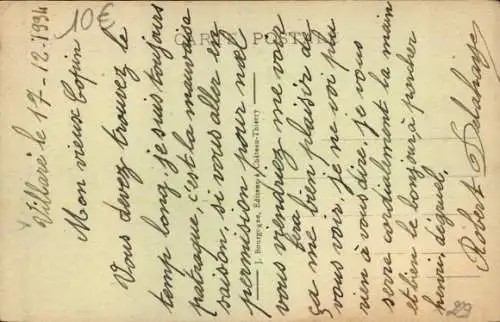 10€
Villiers le 17-12-1934
CARTE POSTALE
Mon vieux Copain
Vous devez trouvez le
temp long, je suis toujours
patraque, c'est la mauvaise
saison, si vous aller en
permission pour noel
vous viendriez me voir
ça me fera bien plaisir de
vous voir, je ne voi plu
rien à vous dire, je vous
serre cordialement la main
et bien le bonjour à
Robert Delahaye
J. Bourgogne, Éditeur, Château-Thierry
29